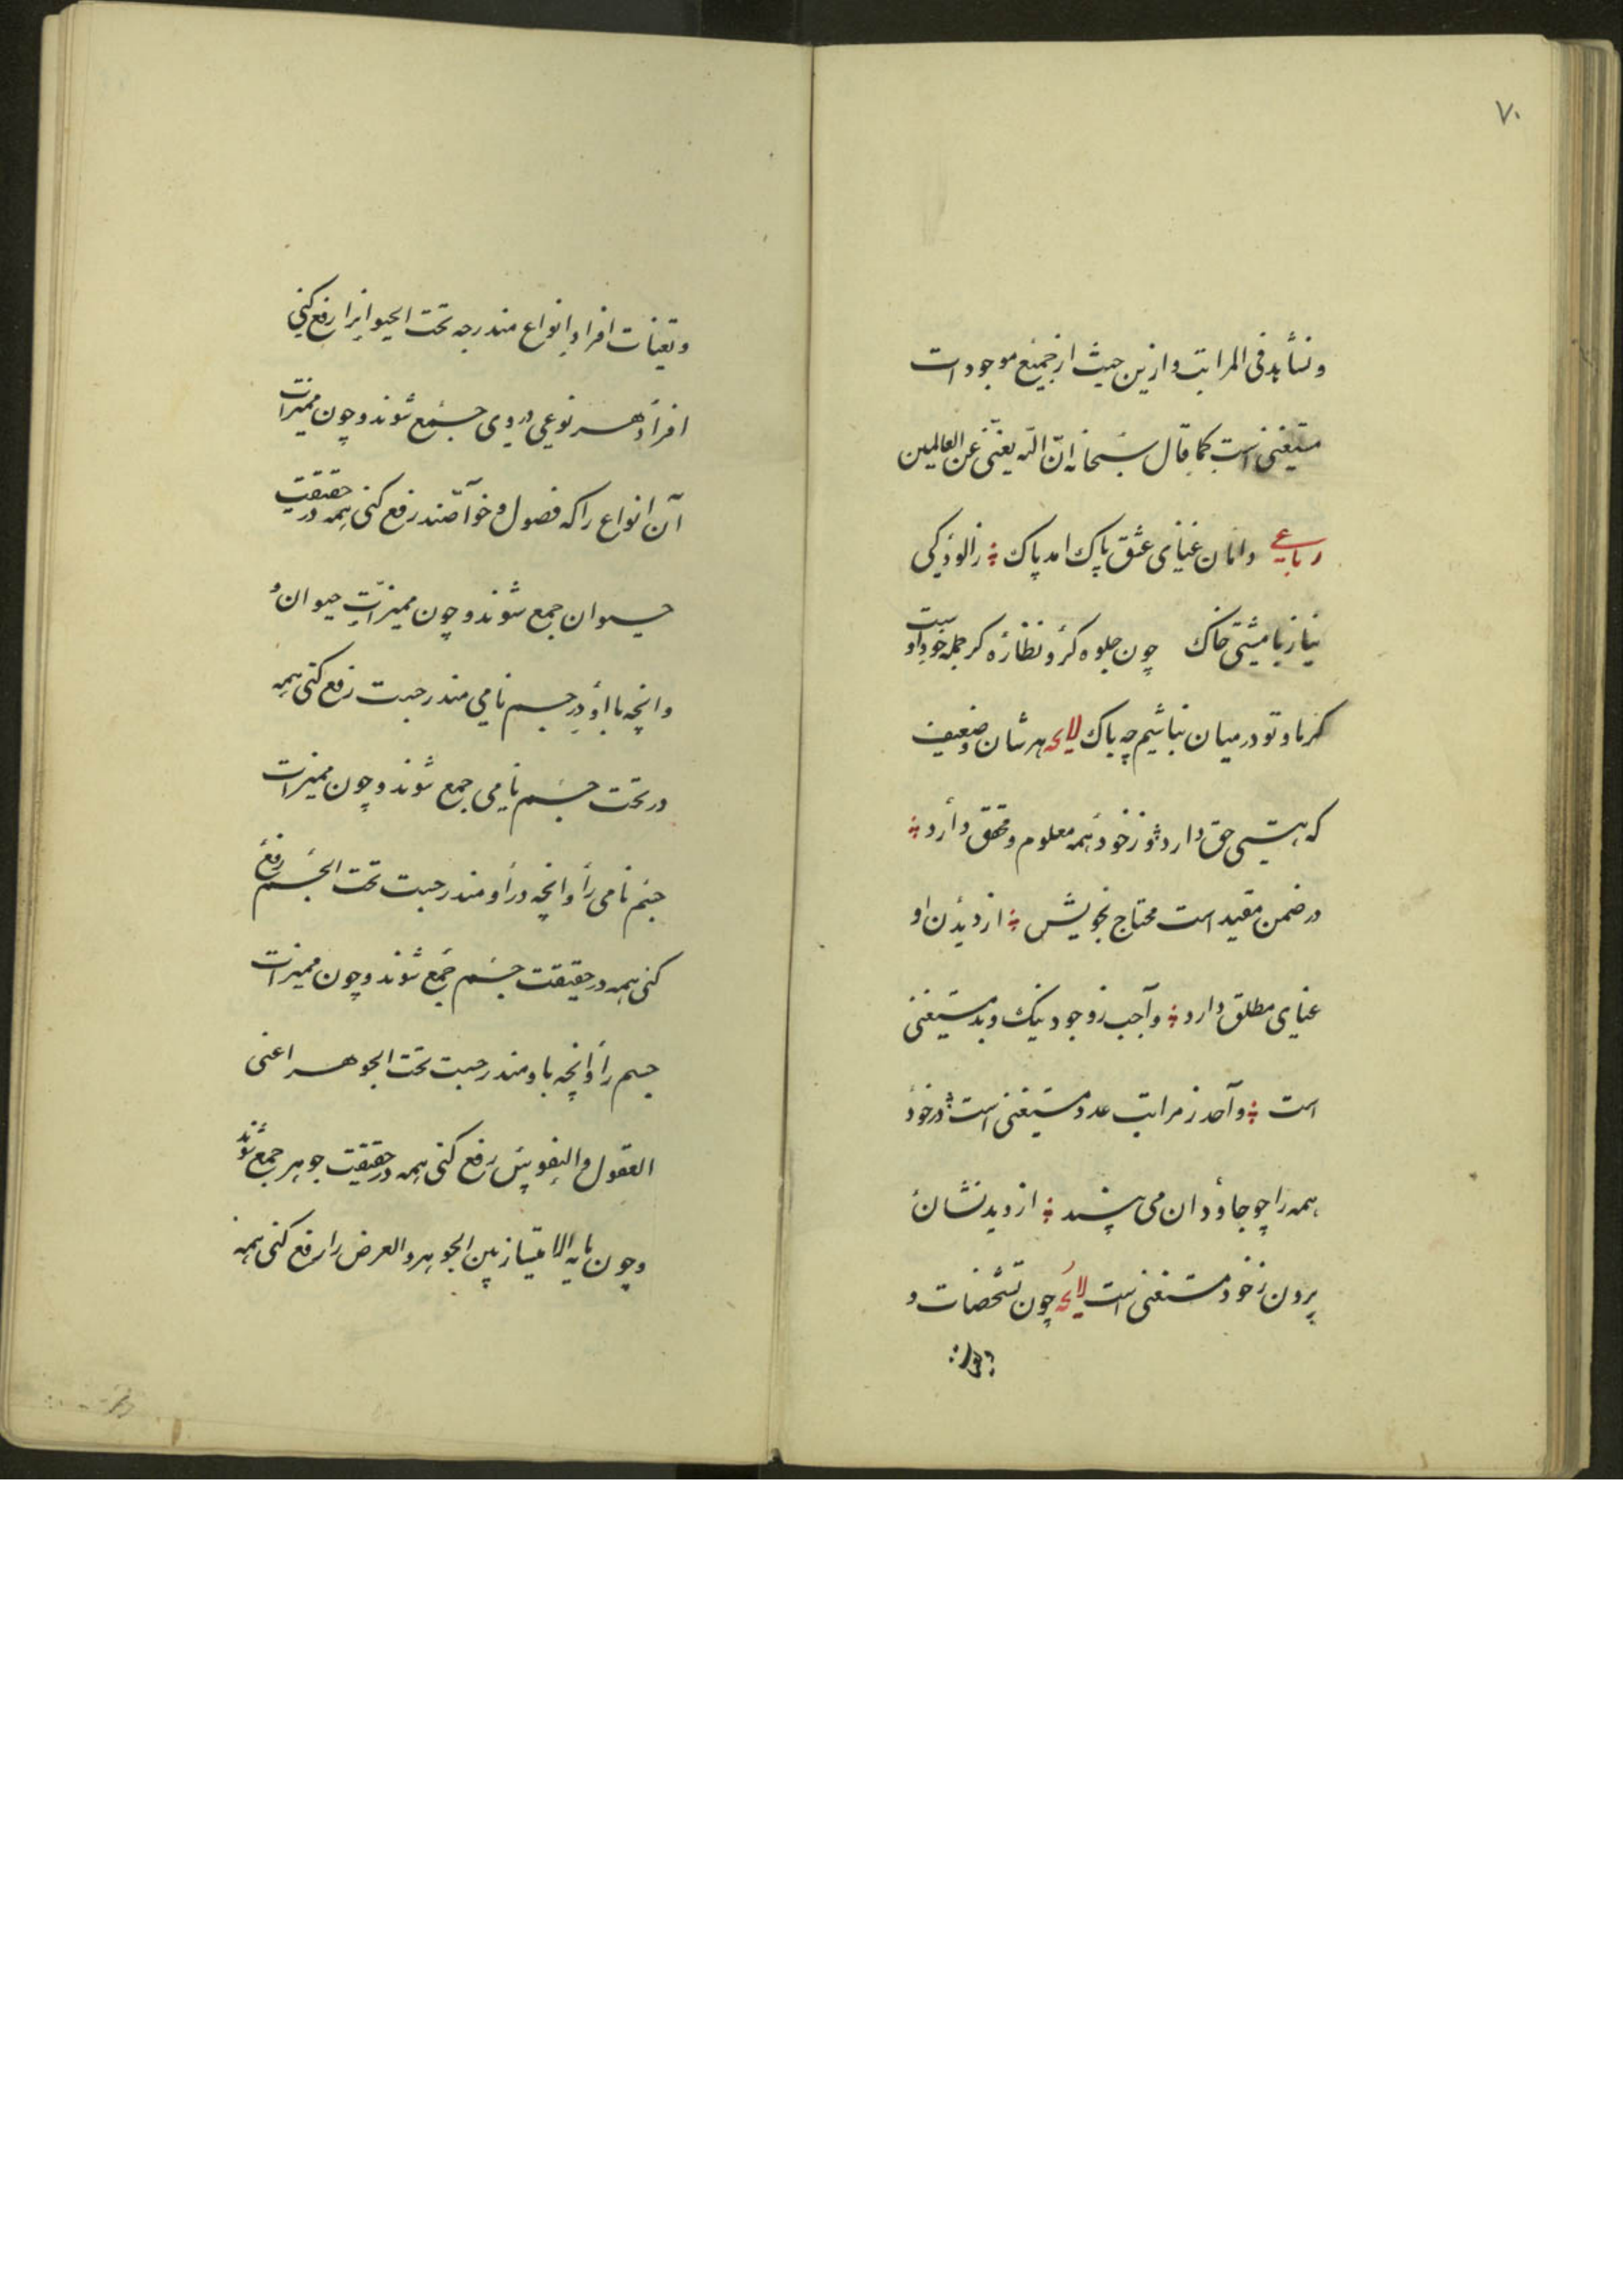 ۷۰
ونشأیدفی المراتب وازین حیث ازجمیع موجودات
مستغنی است کما قال سبحانه ان الله یغنی عن العالمین
رباعی دامان غنای عشق پاک امد پاک زالودگی
نیاز با مشتی خاک چون جلوه کر و نظاره کر جمله خود اوست
کرما و تو درمیان نباشیم چه باک لایحه هرشان وضعیف
که هستی حق دارد در خود همه معلوم و محقق دارد
در ضمن مقید است محتاج بخویش از دیدن او
غنای مطلق دارد واجب زوجود نیک وبد مستغنی
است واحد ز مراتب عدد مستغنی است درخود
همه را چو جاودان می بیند از دیدنشان
برون زخود مستغنی است لایحه چون تشخصات و
وتعینات افراد انواع مندرجه تحت الحیوانرا رفع کنی
افراد هر نوعی در وی جمع شوند و چون ممیزات
آن انواع را که فصول و خواصند رفع کنی همه در حقیقت
حیوان جمع شوند و چون ممیزات حیوان و
وانچه با او در جسم نامی مندرجست رفع کنی همه
در تحت جسم نامی جمع شوند و چون ممیزات
جسم نامی را و انچه در او مندرجست تحت الجسم رفع
کنی همه در حقیقت جسم جمع شوند و چون ممیزات
جسم را و انچه با او مندرجست تحت الجوهر اعنی
العقول و النفوس رفع کنی همه در حقیقت جوهر جمع شوند
و چون مابه الامتیاز بین الجوهر والعرض را رفع کنی همه